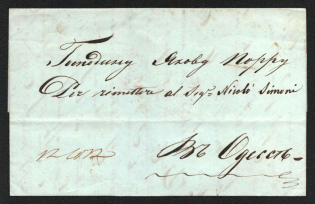 Господину Якову Порру
Per rimettere al Sigr. Nicolò Simoni
Въ Одессѣ